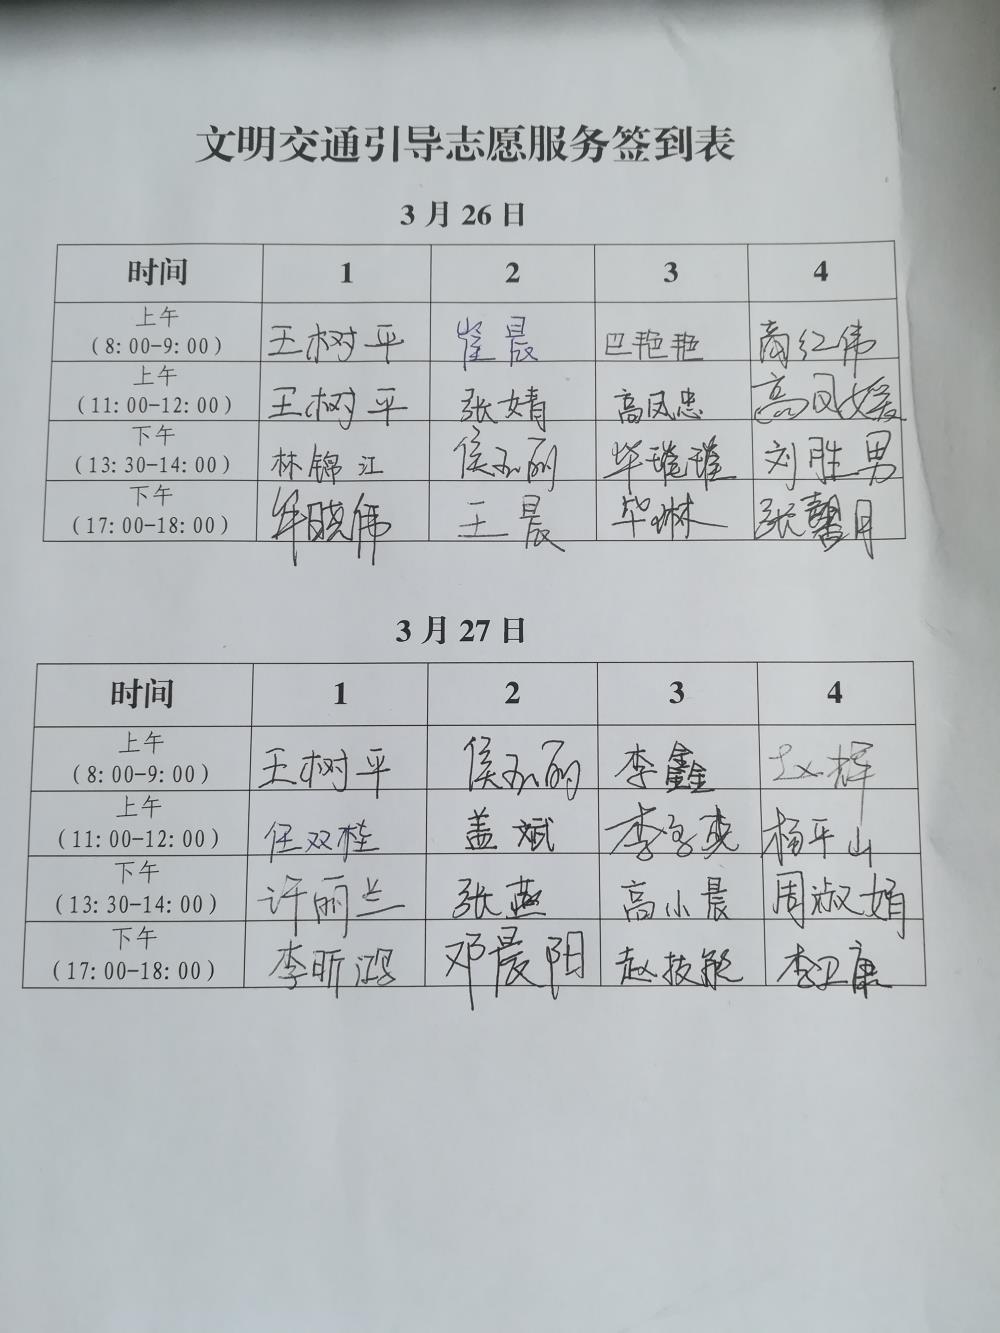 文明交通引导志愿服务签到表
3月26日
时间 1 2 3 4
上午
(8:00-9:00) 王树平 崔晨 巴艳艳 商红伟
上午
(11:00-12:00) 王树平 张婧 高凤忠 高凤媛
下午
(13:30-14:00) 林锦江 侯丽 毕璀璀 刘胜男
下午
(17:00-18:00) 牟晓伟 王晨 毕琳 张馨月
3月27日
时间 1 2 3 4
上午
(8:00-9:00) 王树平 侯丽 李鑫 赵辉
上午
(11:00-12:00) 任双桂 盖斌 李 杨平山
下午
(13:30-14:00) 许丽兰 张燕 高小晨 周淑娟
下午
(17:00-18:00) 李昕鸿 邓晨阳 赵技能 李卫康